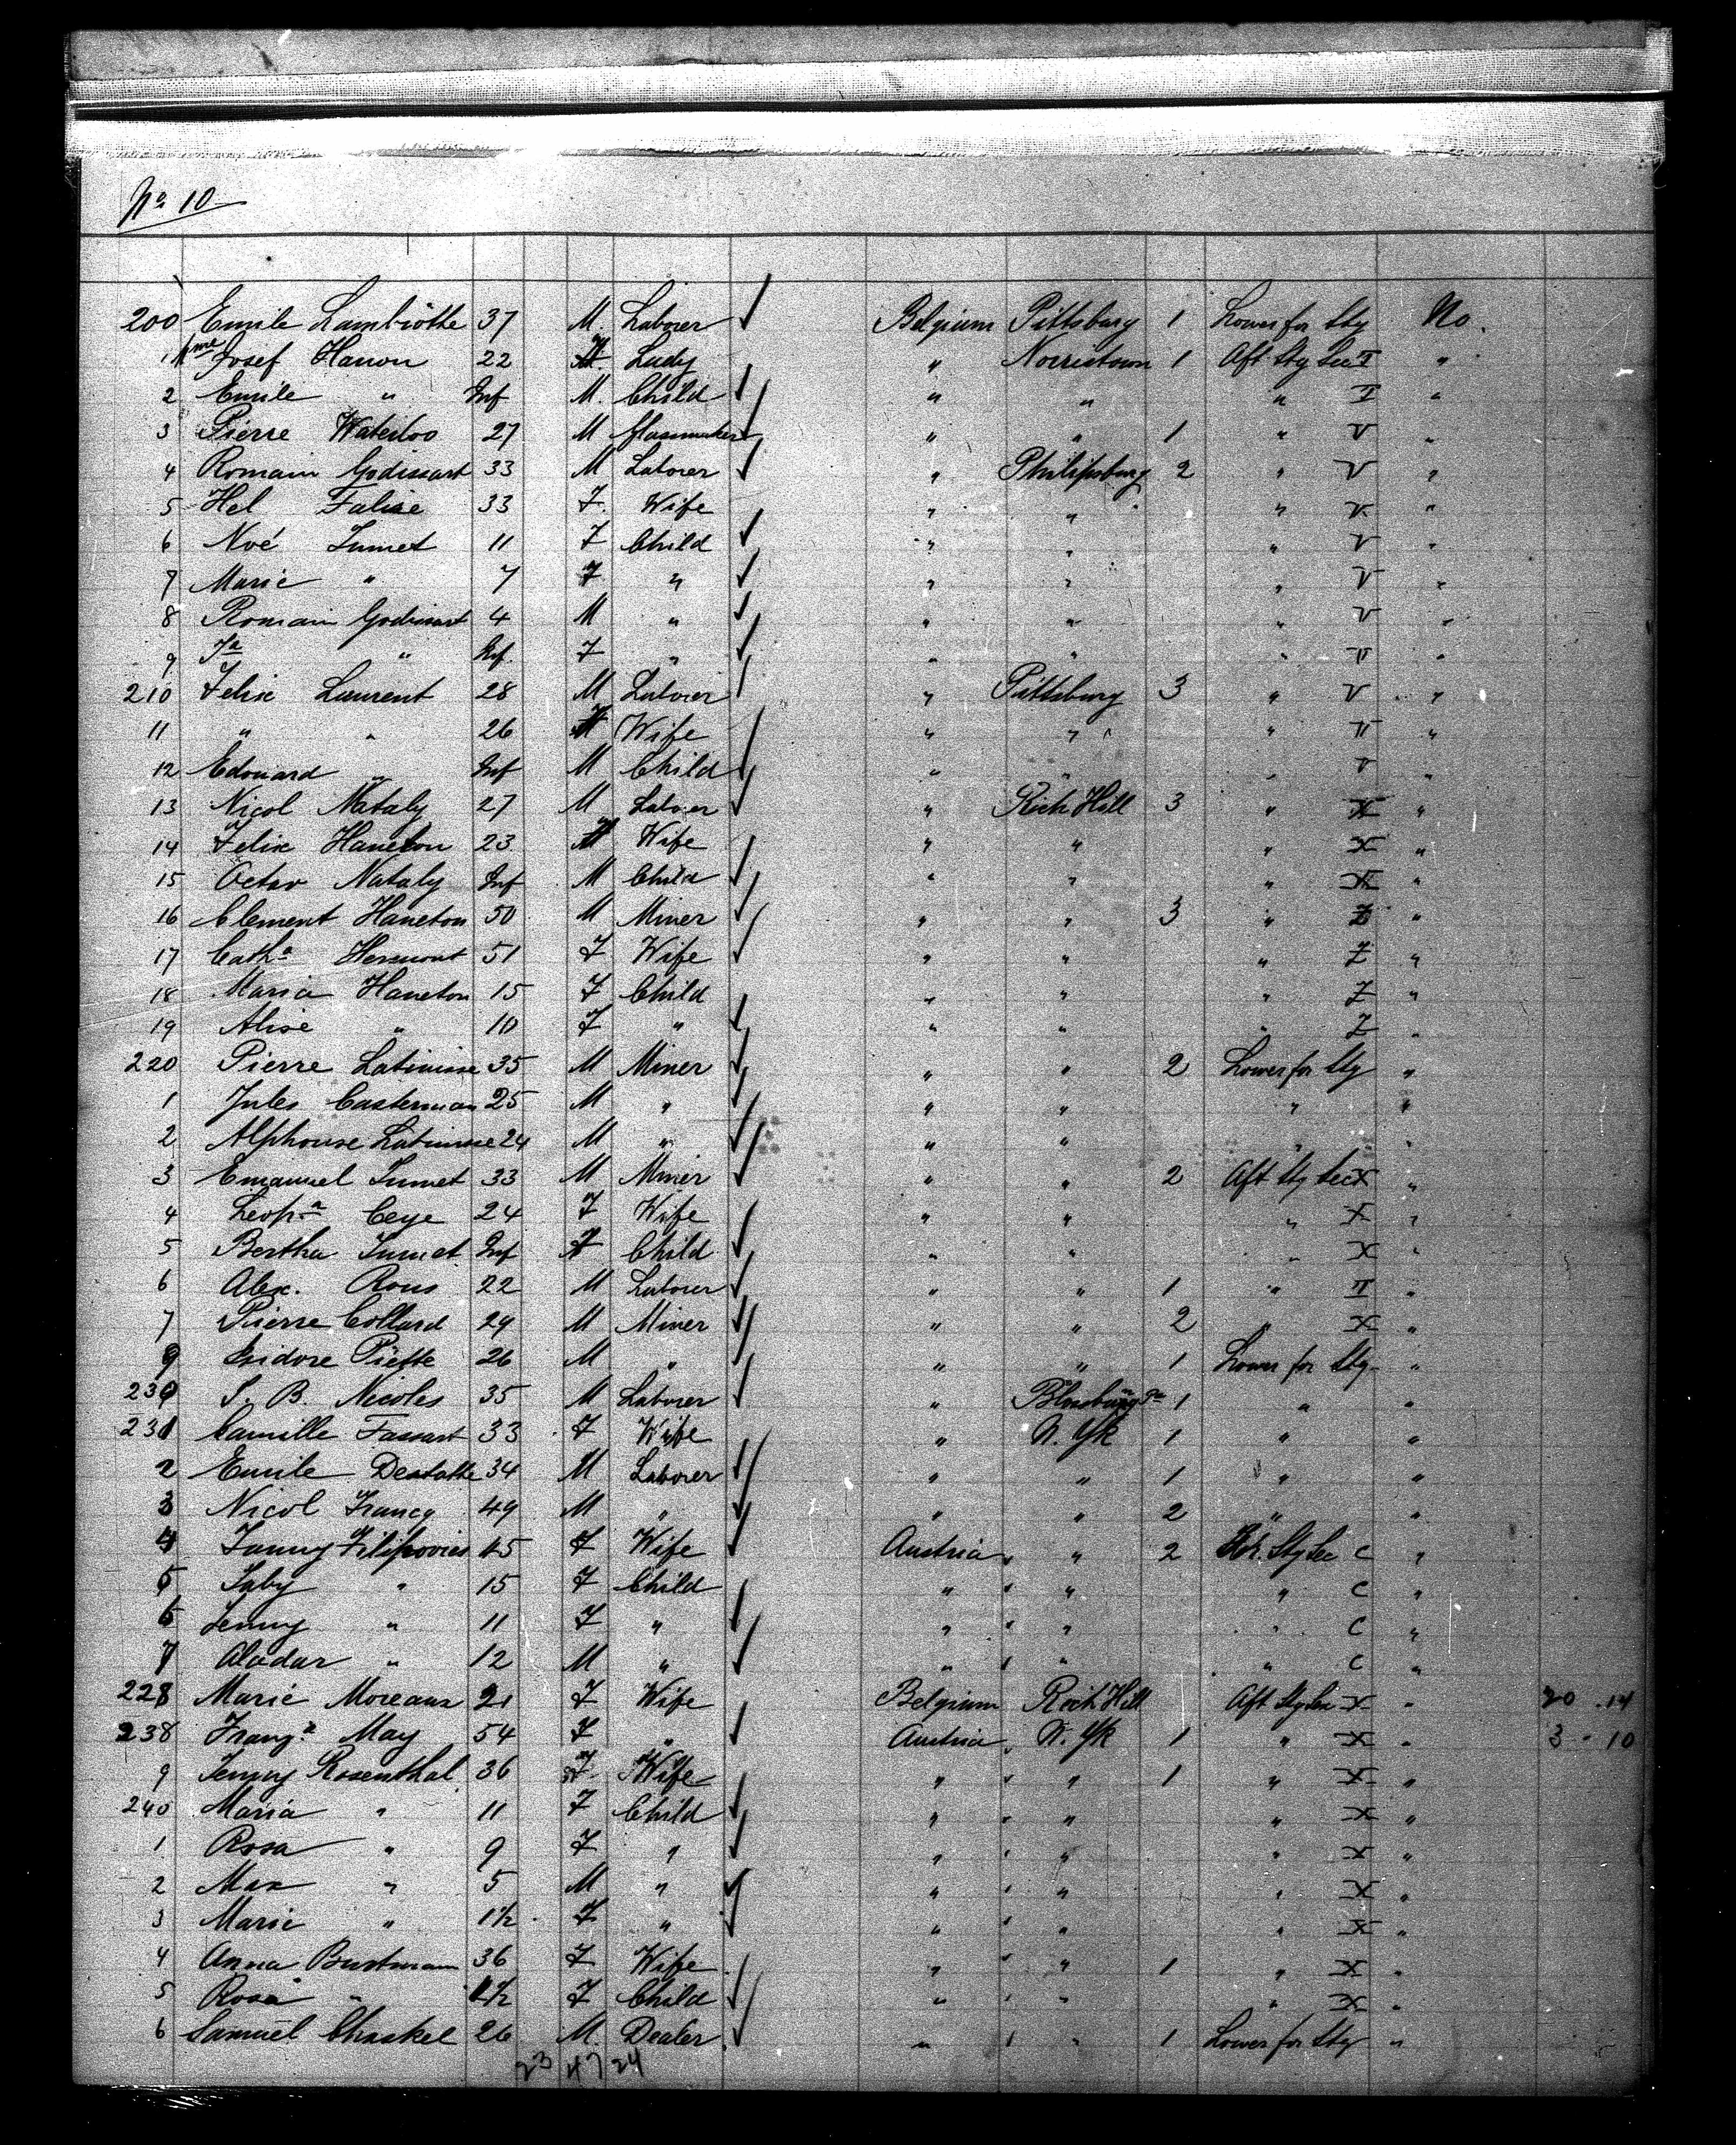 No 10
200 Emile Lambiotte 37 M. Laborer Belgium Pittsburg 1 Lower for Stg No.
1 Me Josef Hanon 22 F. Lady " Norristown 1 Aft Stg Sec V "
2 Emile " Inf M. Child " " " V "
3 Pierre Waterloo 27 M Glassmaker " " 1 " V "
4 Romain Godissart 33 M Laborer " Philipsburg 2 " V "
5 Hel Falise 33 F. Wife " " " V "
6 Noé Jumet 11 F Child " " " V "
7 Marie " 7 F " " " " V "
8 Romain Godissart 4 M " " " " V "
9 " Inf. F " " " " V "
210 Felix Laurent 28 M Laborer " Pittsburg 3 " V "
11 " " 26 F Wife " " " V "
12 Edouard " Inf M Child " " " V "
13 Nicol Nataly 27 M Laborer " Rich Hill 3 " X "
14 Felix Haneton 23 F Wife " " " X "
15 Octav Nataly Inf M Child " " " X "
16 Clement Haneton 50 M Miner " " 3 " Z "
17 Cath.a Hermont 51 F Wife " " " Z "
18 Maria Haneton 15 F Child " " " Z "
19 Alise " 10 F " " " " Z "
220 Pierre Latinisse 35 M Miner " " 2 Lower for Stg "
1 Jules Casterman 25 M " " " " "
2 Alphonse Latinisse 24 M " " " " "
3 Emanuel Jumet 33 M Miner " " 2 Aft Stg Sec X "
4 Leop.a Ceye 24 F Wife " " " X "
5 Bertha Jumet Inf F Child " " " X "
6 Alex. Rous 22 M Laborer " " 1 " "
7 Pierre Collard 29 M Miner " " 2 " X "
9 Isidore Piette 26 M " " " 1 Lower for Stg "
230 J. B. Nicoles 35 M Laborer " Blossburg Pa 1 " "
231 Camille Fassart 33 F Wife " N. Yk 1 " "
2 Emile Destatte 34 M Laborer " " 1 " "
3 Nicol Francq 49 M " " " 2 " "
4 Fanny Filipovics 45 F Wife Austria " 2 Stg Sec C "
5 Saby " 15 F Child " " " C "
6 Jenny " 11 F " " " " C "
7 Aladar " 12 M " " " " C "
228 Marie Moreaux 21 F Wife Belgium Rich Hill Aft Stg Sec X " 20 . 14
238 Franz.a May 54 F " Austria N. Yk 1 " X " 3 - 10
9 Jenny Rosenthal 36 F Wife " " 1 " X "
240 Maria " 11 F Child " " " X "
1 Rosa " 9 F " " " " X "
2 Max " 5 M " " " " X "
3 Marie " 1½ F " " " " X "
4 Anna Bustmann 36 F Wife " " 1 " X "
5 Rosa " F Child " " " X "
6 Samuel Chaskel 26 M Dealer " " 1 Lower for Stg "
23 47 24